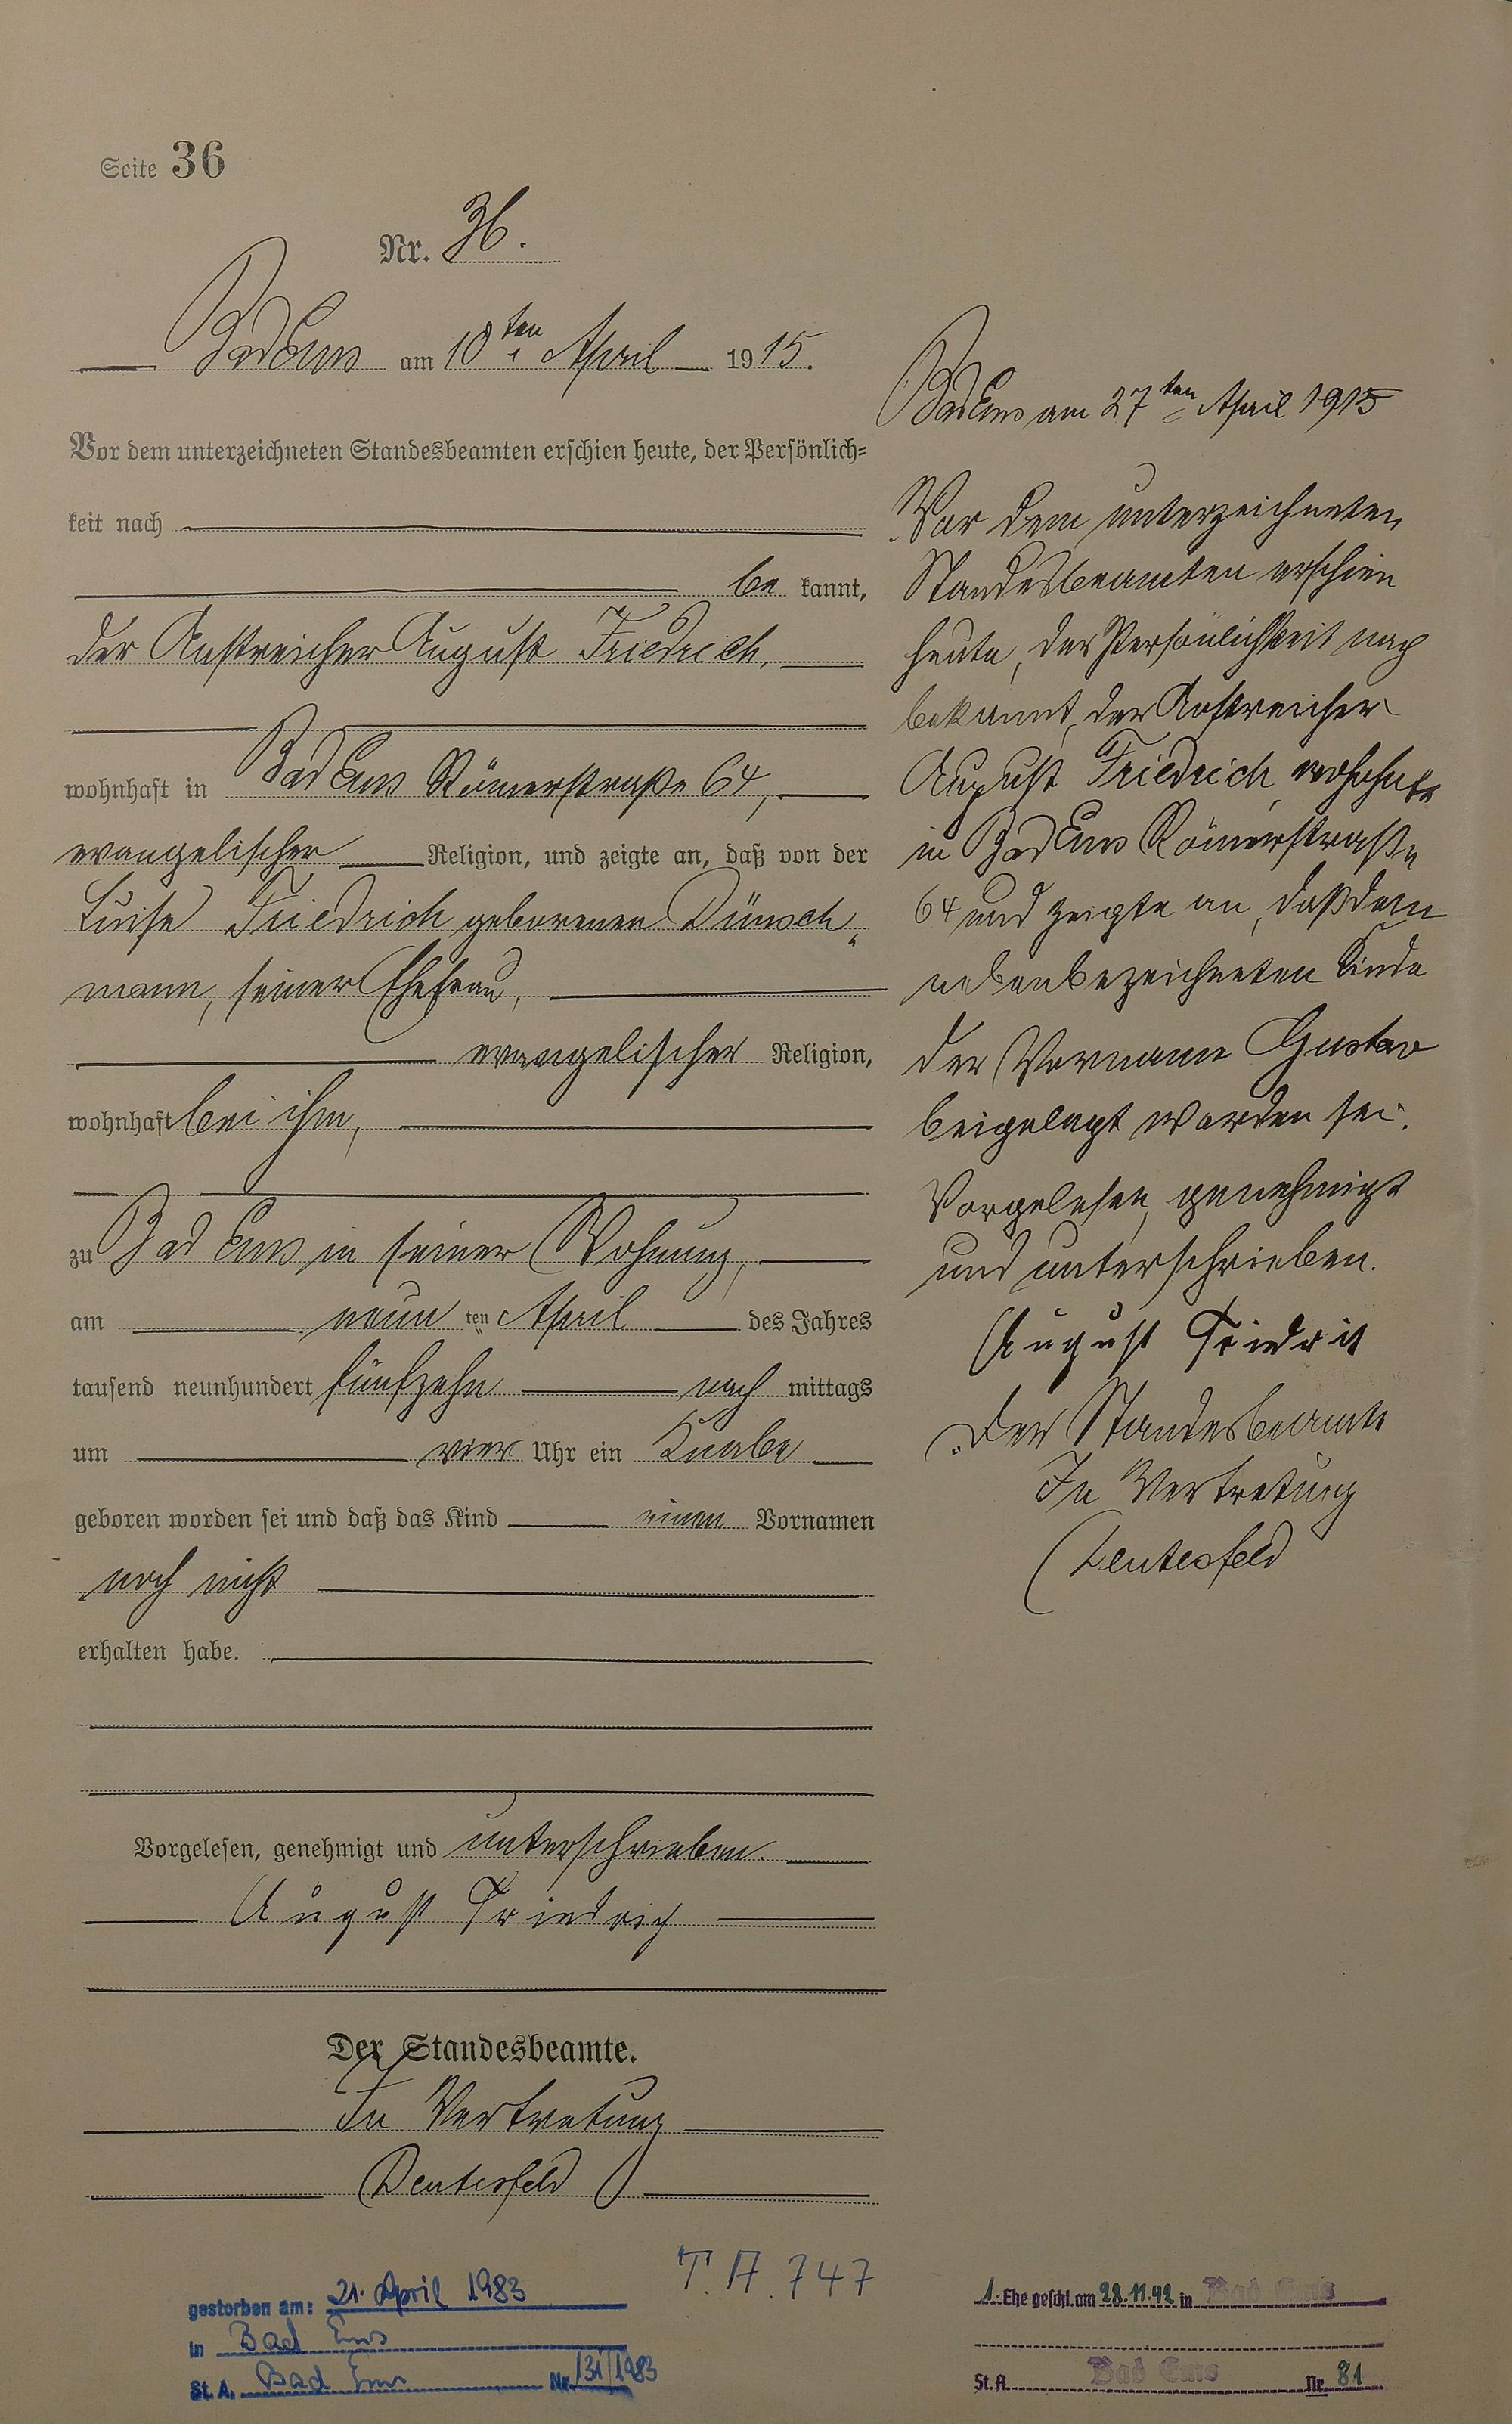 Seite 36
Nr. 36.
Bad Ems am 10ten April 1915.
Vor dem unterzeichneten Standesbeamten erschien heute, der Persönlich=
keit nach
be kannt,
der Anstreicher August Friedrich,
wohnhaft in Bad Ems Römerstraße 64,
evangelischer Religion, und zeigte an, daß von der
Luise Friedrich geborenen Dünsch„
mann, seiner Ehefrau,
evangelischer Religion,
wohnhaft bei ihm,
zu Bad Ems in seiner Wohnung,
am neun ten April des Jahres
tausend neunhundert fünfzehn nach mittags
um vier Uhr ein Knabe
geboren worden sei und daß das Kind einen Vornamen
noch nicht
erhalten habe.
Vorgelesen, genehmigt und unterschrieben.
August Friedrich
Der Standesbeamte.
In Vertretung
Deutesfeld
Bad Ems am 27ten April 1915
Vor dem unterzeichneten
Standesbeamten erschien
heute, der Persönlichkeit nach
bekannt, der Anstreicher
August Friedrich, wohnhaft
in Bad Ems Römerstraße
64 und zeigte an, daß dem
nebenbezeichneten Kinde
der Vorname Gustav
beigelegt worden sei.
Vorgelesen, genehmigt
und unterschrieben.
August Friedrich
Der Standesbeamte
In Vertretung
Deutesfeld
T.A. 747
gestorben am: 21. April 1983
in Bad Ems
St. A. Bad Ems Nr. 131/1983
1. Ehe geschl. am 28.11.42 in Bad Ems
St. A. Bad Ems Nr. 81